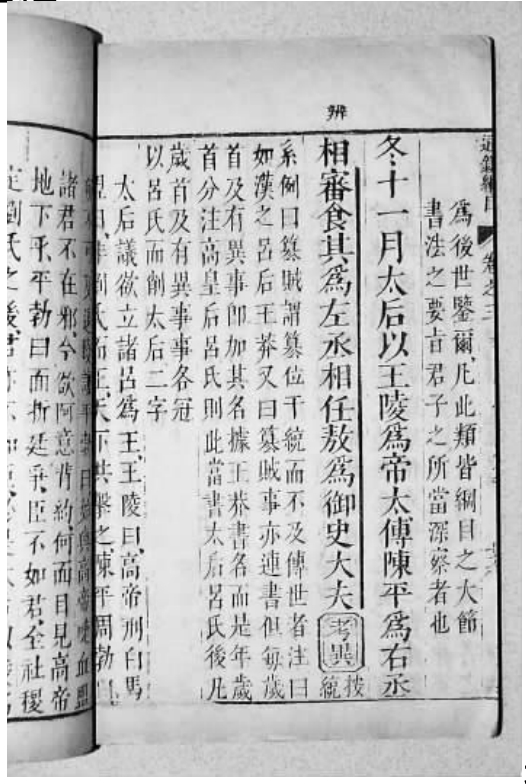 辨
通鑑綱目 卷之三
為後世鑒爾凡此類皆綱目之大節
書法之要旨君子之所當深察者也
冬十一月太后以王陵為帝太傅陳平為右丞
相審食其為左丞相任敖為御史大夫 考異 按統
系例曰簒賊謂簒位干統而不及傳世者注曰
如漢之呂后王莽又曰簒賊事亦連書但每歲
首及有異事即加其名據王莽書名而是年歲
首分注高皇后呂氏則此當書太后呂氏後凡
歲首及有異事事各冠
以呂氏而削太后二字
太后議欲立諸呂為王王陵曰高帝刑白馬
盟曰非劉氏而王天下共擊之陳平周勃
與高帝啑血盟
諸君不在邪今欲阿意背約何面目見高帝
地下乎平勃曰面折廷爭臣不如君全社稷
定劉氏之後君亦不如臣